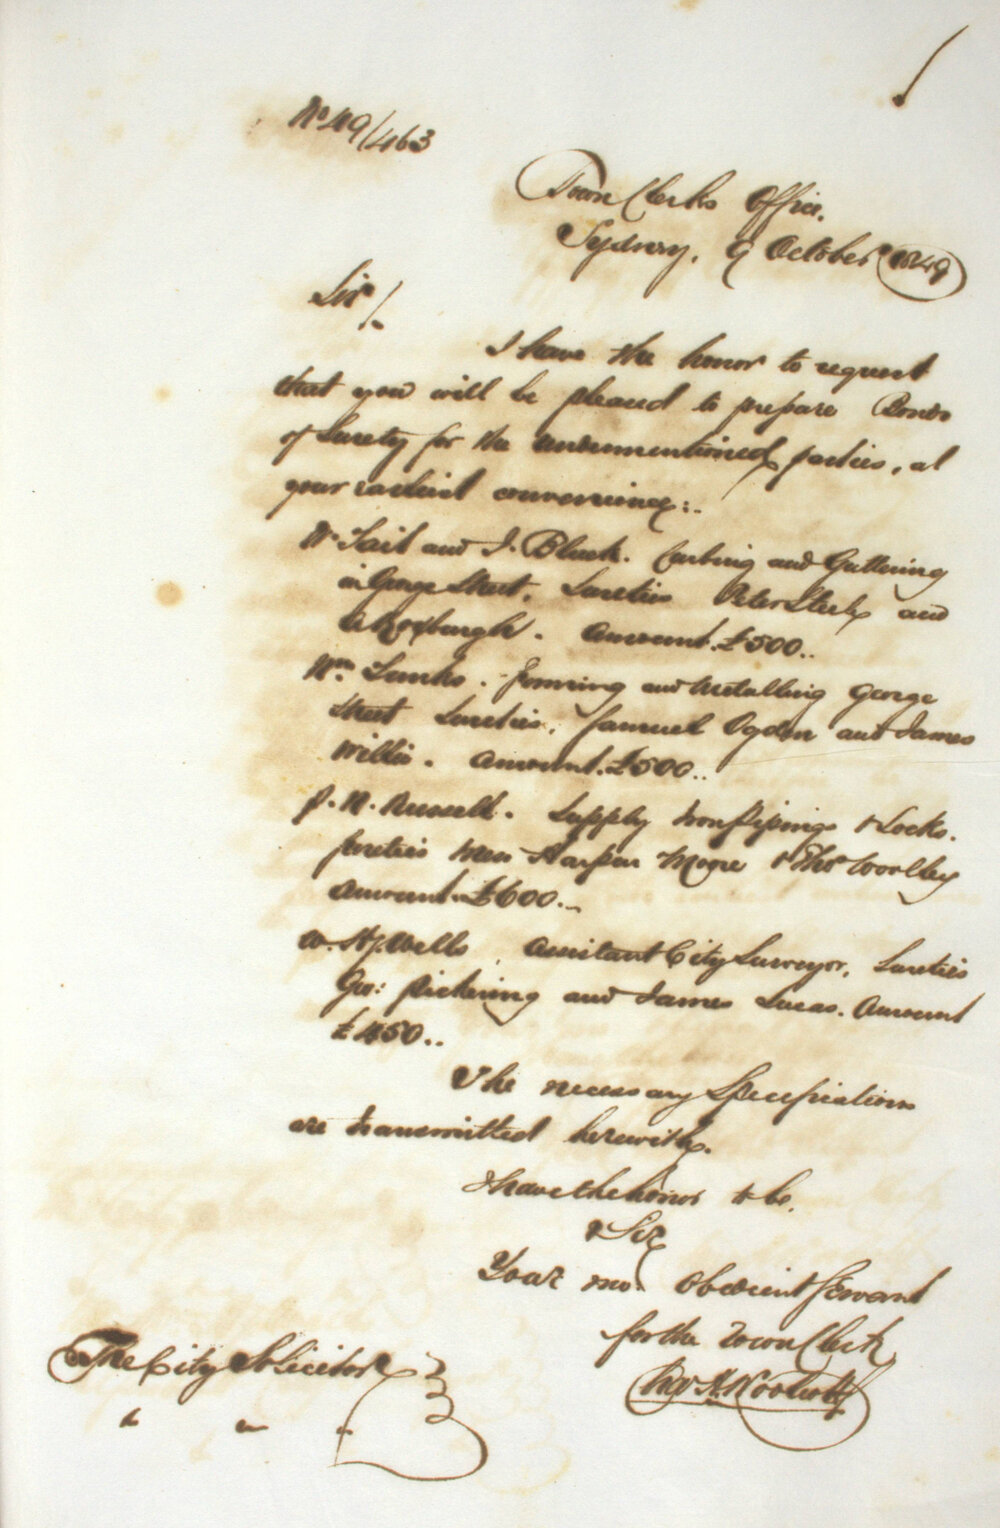 No 49/463
Town Clerks Office,
Sydney, 9 October 1849
Sir/.
I have the honor to request
that you will be pleased to prepare Bonds
of Surety for the undermentioned parties, at
your earliest convenience:.
Tait and J. Black. Curbing and Guttering
in George Street, Sureties Peter Steel and
Roxburgh. Amount. £500..
Wm. Lumks. forming and Metalling George
Street Sureties, Samuel Ogden and James
Willis. Amount. £500..
P. N. Russell. Supply Iron pipings & Locks.
Sureties Moore & Thos Woolley
Amount £600..
W. Hy. Wells, Assistant City Surveyor, Sureties
Geo: Pickering and James Lucas. Amount
£450..
The necessary Specifications
are transmitted herewith.
I have the honor to be,
Sir
Your mo. Obedient Servant
for the Town Clerk
Woolcott
The City Solicitor
" " "